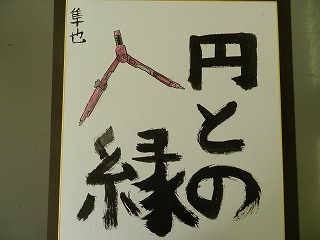 円との
縁
隼也